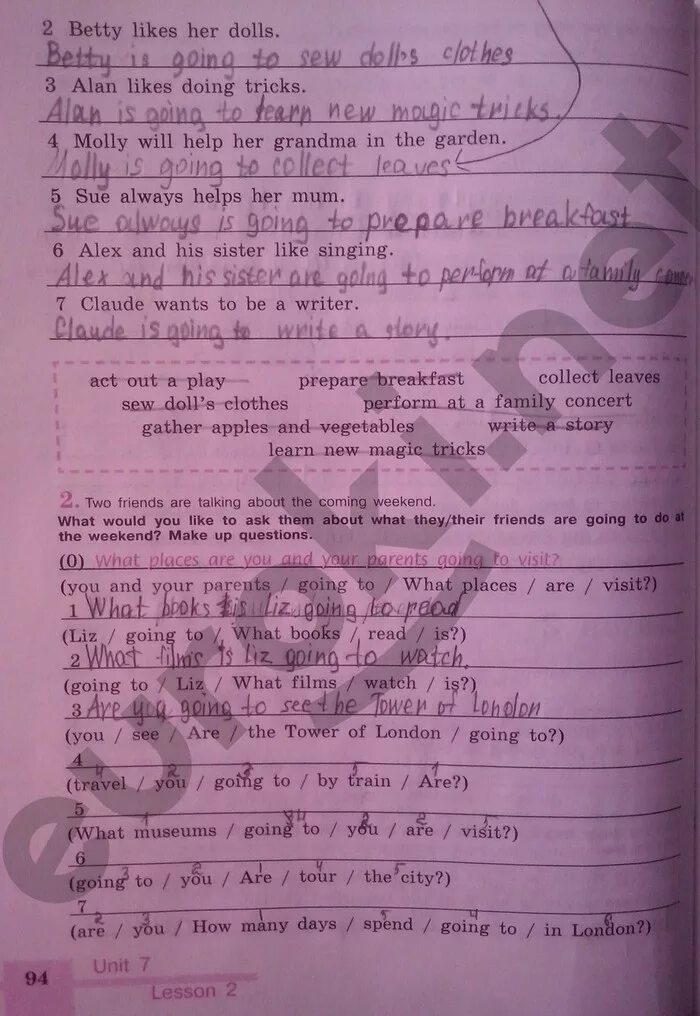 2 Betty likes her dolls.
Betty is going to sew dolls clothes
3 Alan likes doing tricks.
Alan is going to learn new magic tricks.
4 Molly will help her grandma in the garden.
Molly is going to collect leaves
5 Sue always helps her mum.
Sue always is going to prepare breakfast
6 Alex and his sister like singing.
Alex and his sister are going to perform at a family
7 Claude wants to be a writer.
Claude is going to write a story.
act out a play prepare breakfast collect leaves
sew doll's clothes perform at a family concert
gather apples and vegetables write a story
learn new magic tricks
2. Two friends are talking about the coming weekend.
What would you like to ask them about what they/their friends are going to do at
the weekend? Make up questions.
(0) What places are you and your parents going to visit?
(you and your parents / going to / What places / are / visit?)
1 What books is Liz going to read
(Liz / going to / What books / read / is?)
2 What films is Liz going to watch.
(going to / Liz / What films / watch / is?)
3 Are you going to see the Tower of London
(you / see / Are / the Tower of London / going to?)
4
4 2 3 5 1
(travel / you / going to / by train / Are?)
5
1 4 3 2 5
(What museums / going to / you / are / visit?)
6
3 2 1 4 5
(going to / you / Are / tour / the city?)
7
2 3 1 5 4 6
(are / you / How many days / spend / going to / in London?)
94 Unit 7
Lesson 2
euroki.net